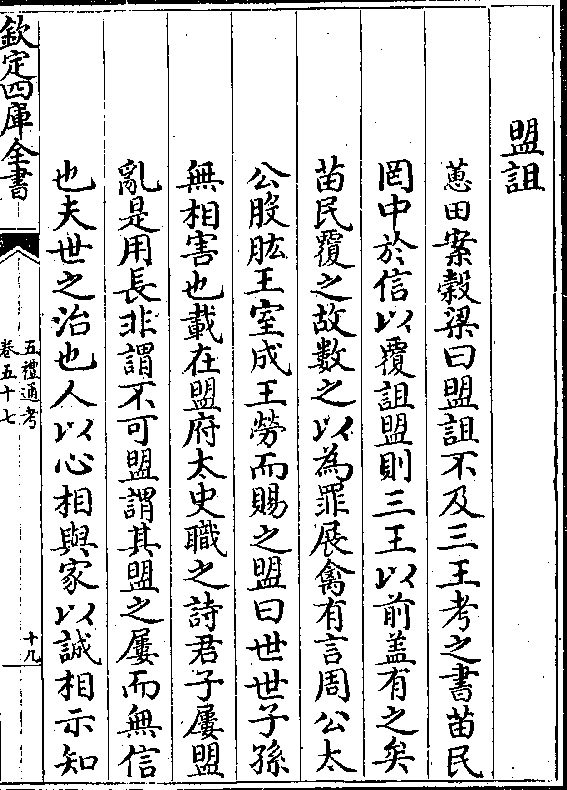 盟詛
蕙田案穀梁曰盟詛不及三王考之書苗民
罔中於信以覆詛盟則三王以前盖有之矣
苗民覆之故數之以為罪展禽有言周公太
公股肱王室成王勞而賜之盟曰世世子孫
無相害也載在盟府太史職之詩君子屢盟
亂是用長非謂不可盟謂其盟之屢而無信
也夫世之治也人以心相與家以誠相示知
欽定四庫全書
五禮通考
卷五十七
十九